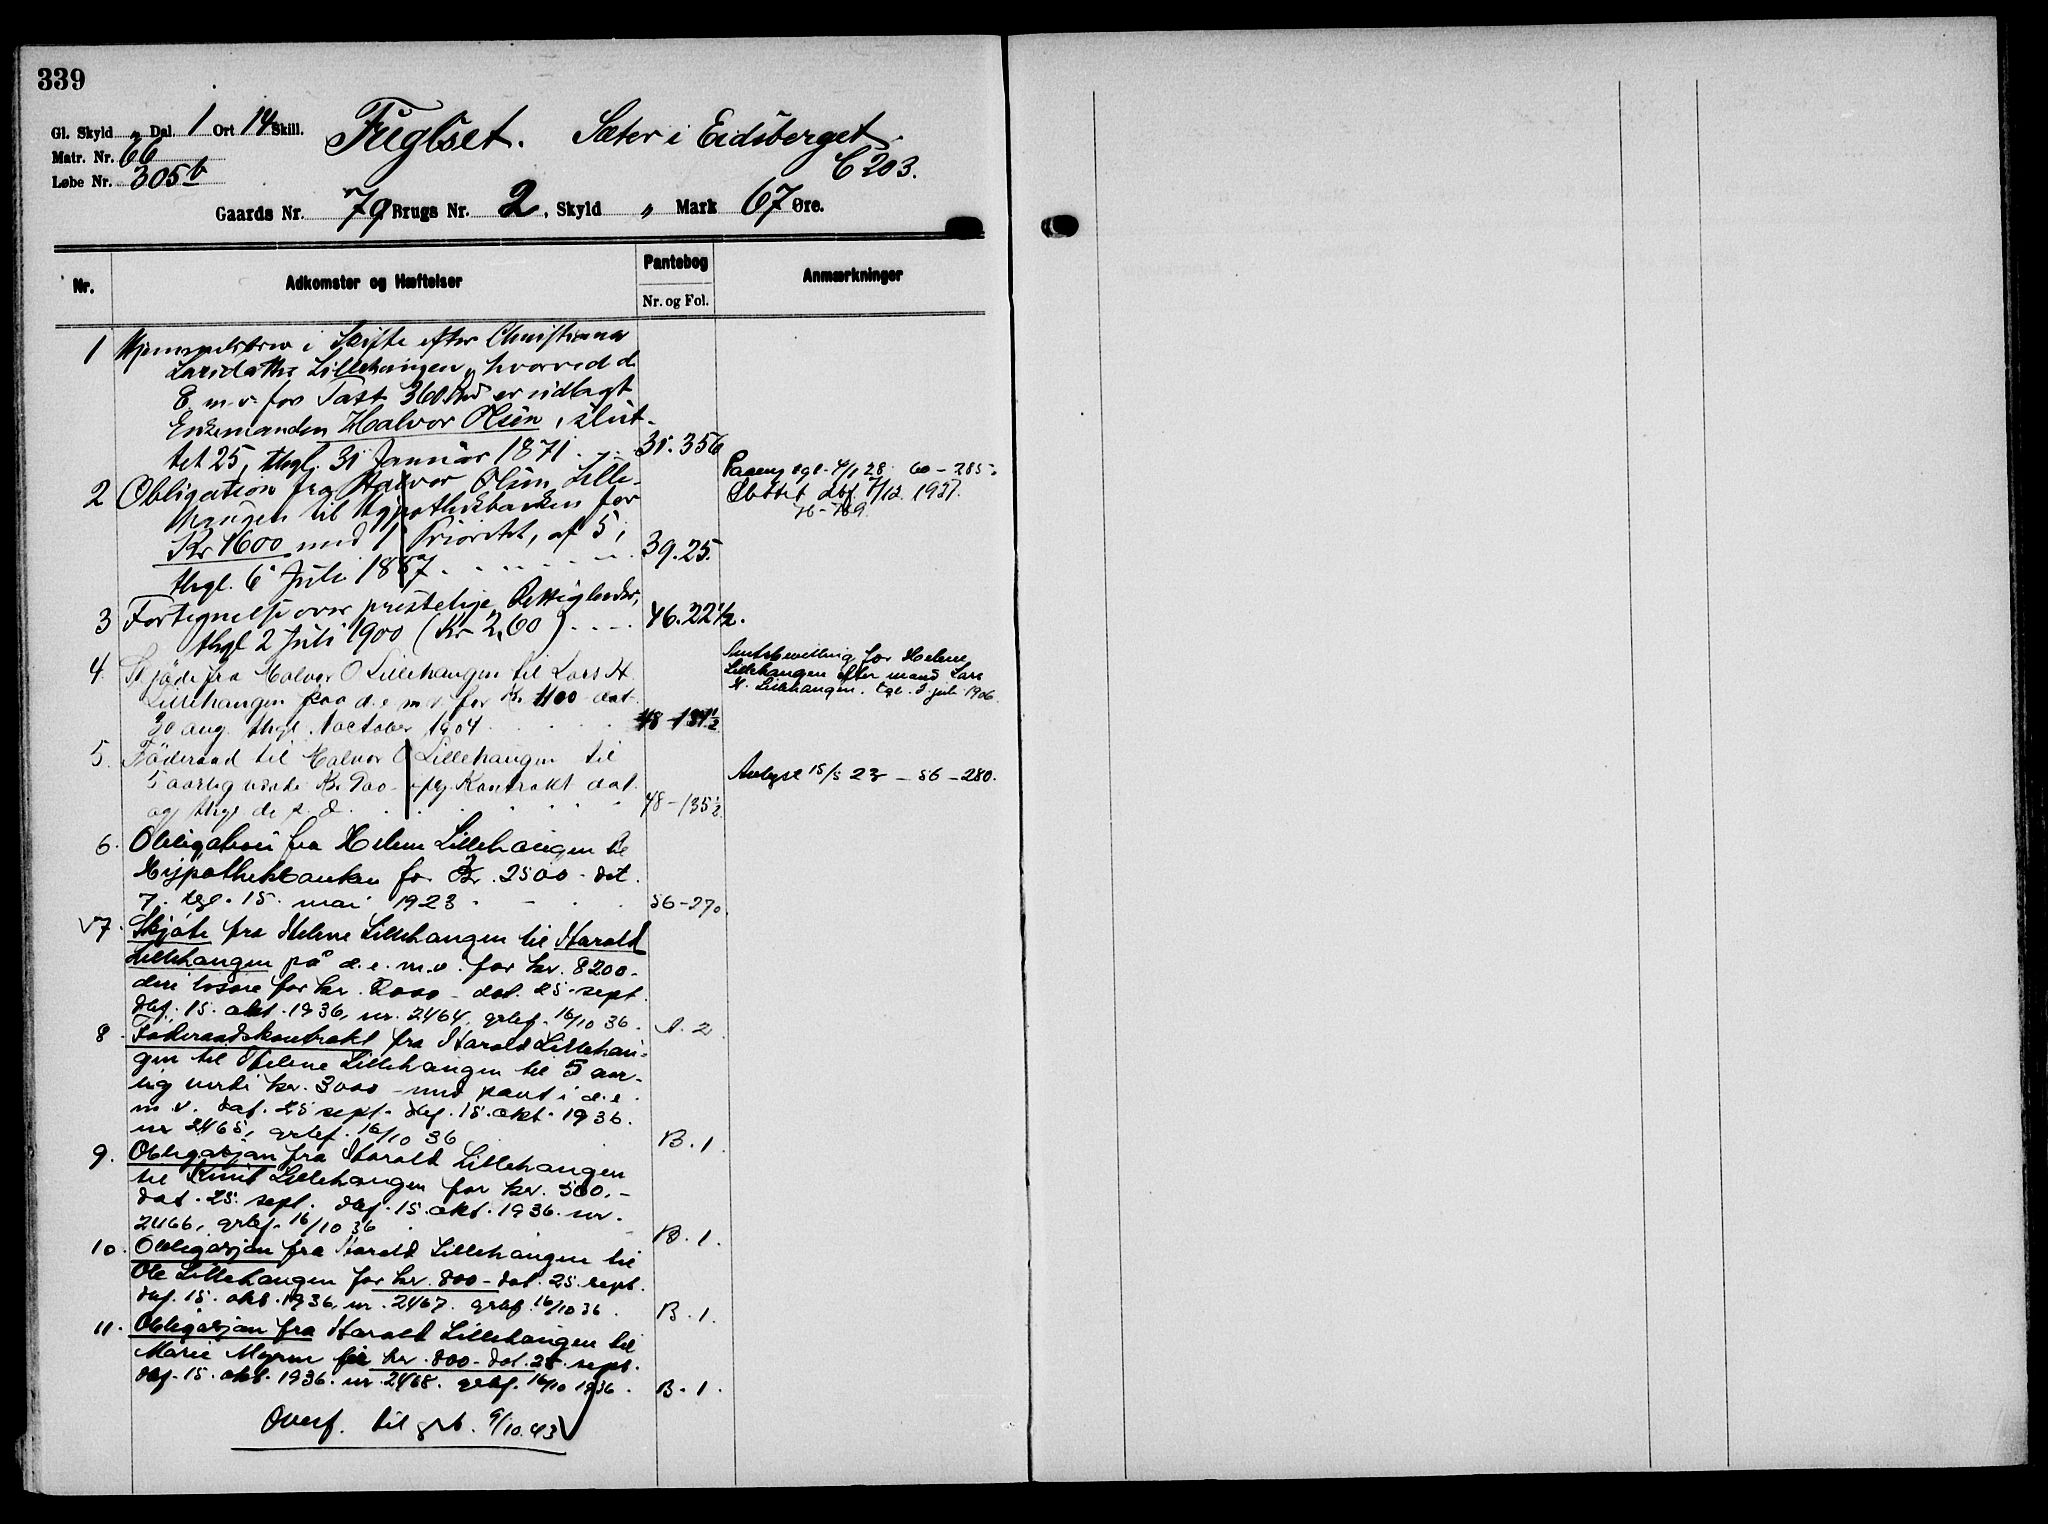 339
Gl. Skyld " Dal. 1 Ort 14 Skill.
Matr. Nr. 66
Løbe Nr. 305b
Fuglset. Sæter i Eidsberget.
C 203.
Gaards Nr. 79 Brugs Nr. 2, Skyld " Mark 67 Øre.
Nr.
Adkomster og Hæftelser
Pantebog
Nr. og Fol.
Anmærkninger
1 Hjemmelsbrev i Skifte efter Christianna
Larsdatter Lillehaugen, hvorved d.
E. m. v. for Taxt 360 er udlagt
Enkemanden Halvor Olsen, slut-
tet 25, thgl. 31 Januar 1871. 31. 356
2 Obligation fra Halvor Olsen Lille-
haugen til Hypothekbanken for
Kr 1600 med 1 Prioritet, af 5,
thgl. 6 Juli 1887. 39.25.
Paaeng tgl. 4/1 28. 60 - 285
Slettet dbf. 7/12. 1937.
3 Fortegnelse over prestelige Rettigheder,
thgl 2 Juli 1900 (Kr 2,60) 46.22 1/2.
4. Skjøde fra Halvor O Lillehaugen til Lars H.
Lillehaugen paa d. e m. v. for Kr 1100 dat
30 aug. thgl. 1 october 1904 48-134 1/2
Amtsbevilling for Helene
Lillehaugen efter mand Lars
H. Lillehaugen. tgl. 2 juli 1906.
5. Føderaad til Halvor O Lillehaugen til
5 aarlig værdi Kr. 900 - iflg. Kontrakt dat.
og thgl. d. s. d. 48-135 1/2
Avlyst 15/5 23 - 56 - 280.
6. Obligation fra Helene Lillehaugen til
Hypothekbanken for Kr. 2500 - dat.
7. tgl. 15. mai 1923 56-270.
7. Skjøte fra Helene Lillehaugen til Harald
Lillehaugen på d. e. m. v. for kr. 8200 -
deri løsøre for kr. 2000 - dat. 25. sept.
dbf. 15. okt. 1936, nr. 2464, grbf. 16/10 36. A. 2
8. Føderaadskontrakt fra Harald Lillehau-
gen til Helene Lillehaugen til 5 aar-
lig verdi kr. 3000 - med pant i d. e.
m. v. dat. 25 sept. dbf. 15. okt. 1936.
nr 2465, grbf. 16/10 36 B. 1.
9. Obligasjon fra Harald Lillehaugen
til Knut Lillehaugen for kr. 500. -
dat. 25. sept. dbf. 15. okt. 1936. nr.
2466, grbf. 16/10 36 B. 1.
10. Obligasjon fra Harald Lillehaugen til
Ole Lillehaugen for kr. 800 - dat. 25. sept.
dbf. 15. okt. 1936, nr. 2467. grbf. 16/10 36. B. 1.
11. Obligasjon fra Harald Lillehaugen til
Marie Myren for kr. 800 - dat. 25. sept.
dbf. 15. okt. 1936. nr. 2468. grbf. 16/10 1936. B. 1.
Overf. til grb. 9/10.43